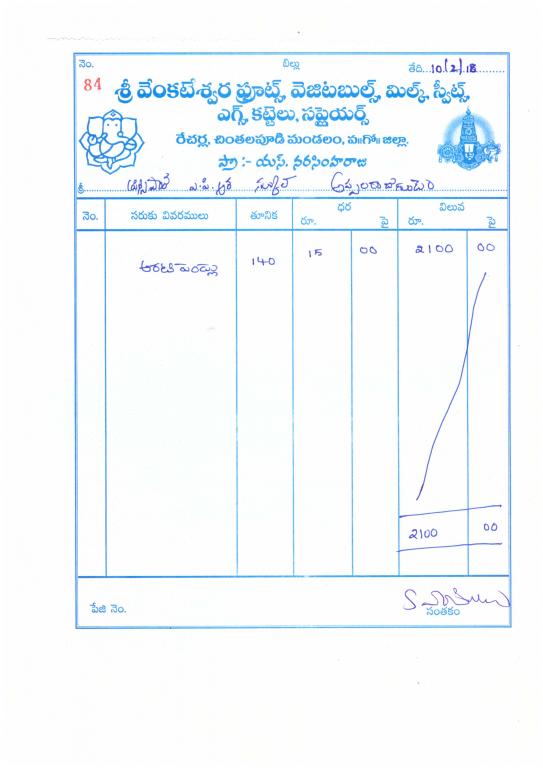 నెం. బిల్లు తేది..10/2/18
84 శ్రీ వేంకటేశ్వర ఫ్రూట్స్, వెజిటబుల్స్, మిల్క్, స్వీట్స్,
ఎగ్స్, కట్టెలు, సప్లైయర్స్
రేచర్ల, చింతలపూడి మండలం, ప॥గో॥ జిల్లా.
ప్రొ :- యస్. నరసింహరాజు
శ్రీ ఎ.పి.ఆర్
నెం. సరుకు వివరములు తూనిక ధర విలువ
రూ. పై రూ. పై
అరటి పండ్లు 140 15 00 2100 00
2100 00
పేజి నెం. సంతకం